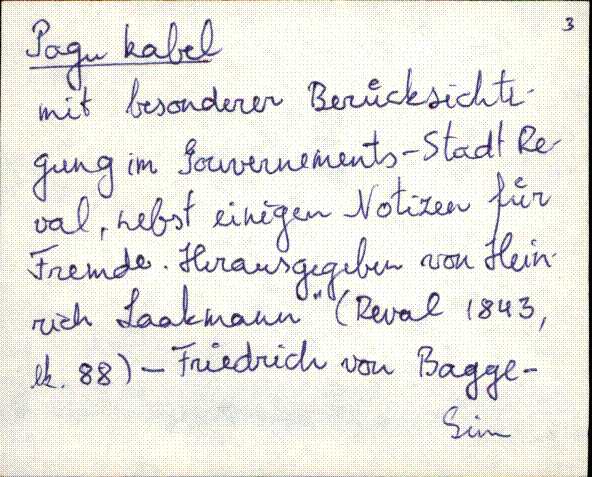 3
Pagu kabel
mit besonderer Berücksichti-
gung im Gouvernements-Stadt Re-
val, nebst einigen Notizen für
Fremde. Herausgegeben von Hein-
rich Laakmann" (Reval 1843,
lk. 88) - Friedrich von Bagge-
Siin